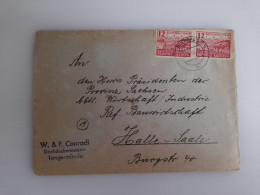 12 12
An
den Herrn Präsidenten der
Provinz Sachsen
Abt. Wirtschaft Industrie
Ref. Bauwirtschaft
Halle-Saale
Burgstr. 40
W. & F. Conradi
Dachdeckermeister
Tangermünde